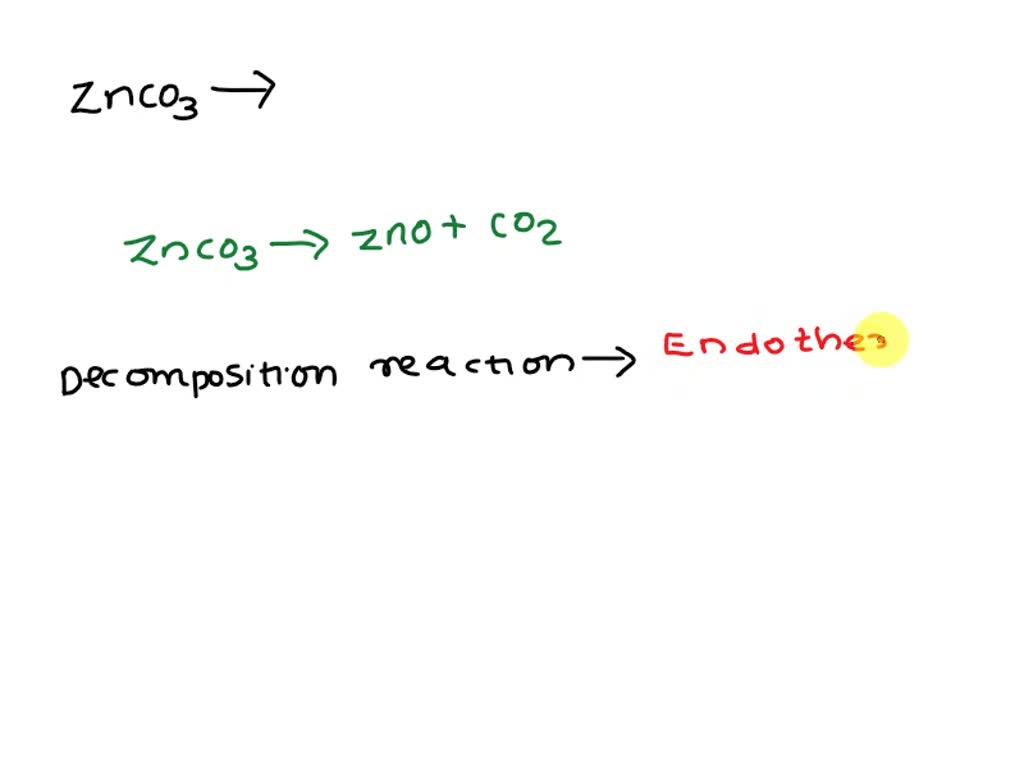 ZnCO3 →
ZnCO3 → ZnO + CO2
Decomposition reaction → Endothe